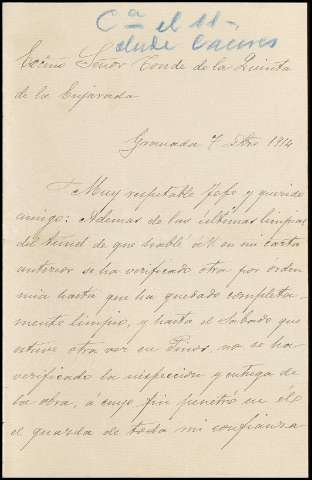 Cª el 11-
desde Caceres
Excmo Señor Conde de la Quinta
de la Enjarada
Granada 7 Dbre 1914
Muy respetable Jefe y querido
amigo: Ademas de las últimas limpias
del tunel de que hablé á V. en mi carta
anterior se ha verificado otra por órden
mia hasta que ha quedado completa-
mente limpio, y hasta el Sabado que
estuve otra vez en Pinos, no se ha
verificado la inspeccion y entrega de
la obra, á cuyo fin penetró en él
el guarda de toda mi confianza